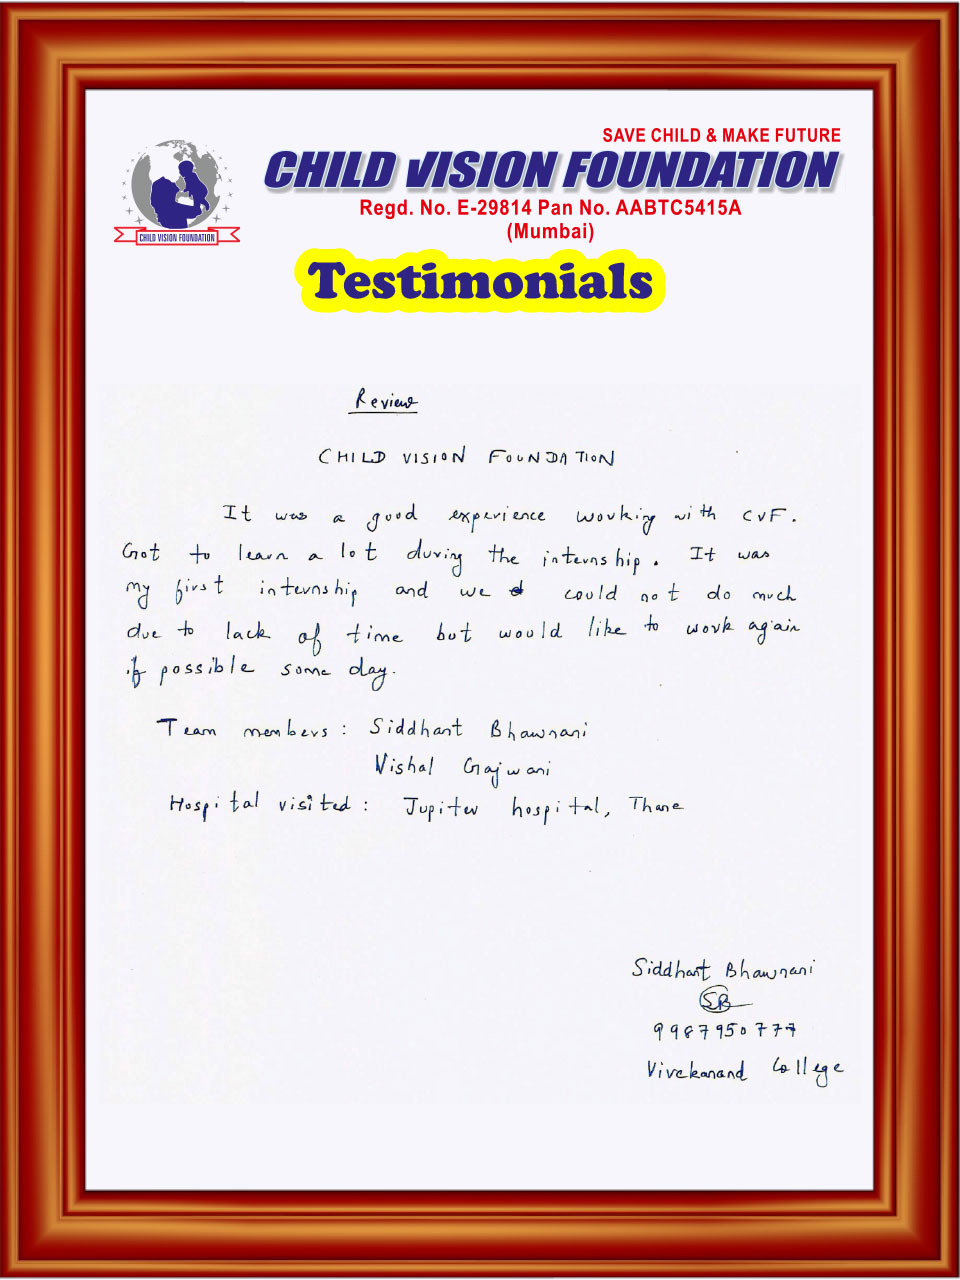 SAVE CHILD & MAKE FUTURE
CHILD VISION FOUNDATION
Regd. No. E-29814 Pan No. AABTC5415A
(Mumbai)
CHILD VISION FOUNDATION
Testimonials
Review
CHILD VISION FOUNDATION
It was a good experience working with CVF.
Got to learn a lot during the internship. It was
my first internship and we could not do much
due to lack of time but would like to work again
if possible some day.
Team members : Siddhant Bhawnani
Vishal Gajwani
Hospital visited : Jupiter hospital, Thane
Siddhant Bhawnani
SB
9987950777
Vivekanand College